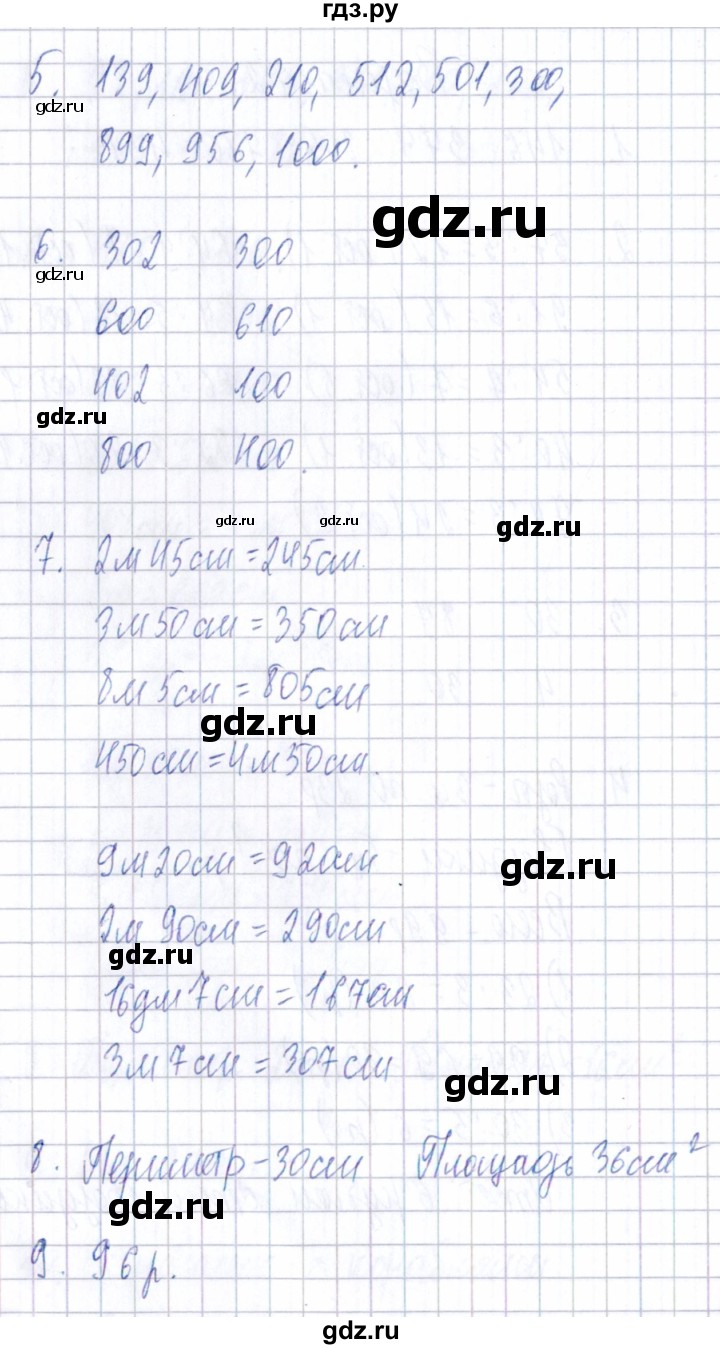 гдз.ру
5. 139, 409, 210, 512, 501, 300,
gdz.ru
899, 956, 1000.
gdz.ru
6. 302 300
gdz.ru
600 610
402 100
gdz.ru
800 400.
gdz.ru gdz.ru
gdz.ru
7. 2м 45см = 245см.
3м 50см = 350см
8м 5см = 805см
gdz.ru
450см = 4м 50см.
9м 20см = 920см
gdz.ru
2м 90см = 290см
gdz.ru
16дм 7см = 167см
3м 7см = 307см
gdz.ru
8. Периметр - 30см Площадь 36см²
gdz.ru
9. 96 р.
gdz.ru